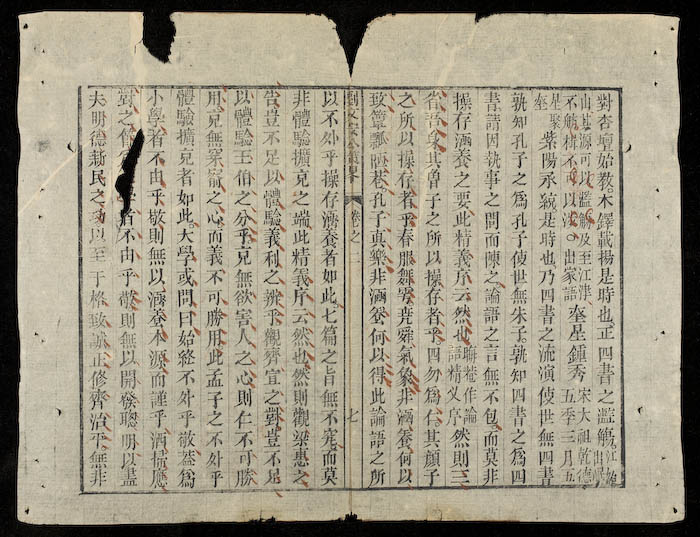 對杏壇始教木鐸載揚是時也正四書之濫觴江始出岷
山其源可以濫觴及至江津不舫楫不可以涉出家語奎星鍾秀宋太祖乾德五季三月五
星聚奎紫陽承統是時也乃四書之流演使世無四書
孰知孔子之爲孔子使世無朱子孰知四書之爲四
書請因執事之問而陳之論語之言無不包而莫非
操存涵養之要此精義序云然也晦菴作論語精義序然則三
省吾身其曾子之所以操存者乎四勿爲仁其顏子
之所以操存者乎春服舞雩堯舜氣象非涵養何以
致簞瓢陋巷孔子真樂非涵養何以得此論語之所
卷之二 七
以不外乎操存涵養者如此七篇之旨無不究而莫
非體驗擴充之端此精義序云然也然則觀梁惠之
告豈不足以體驗義利之辨乎觀齊宣之對豈不足
以體驗王伯之分乎充無欲害人之心則仁不可勝
用充無穿窬之心而義不可勝用此孟子之不外乎
體驗擴充者如此大學或問曰始終不外乎敬蓋爲
小學者不由乎敬則無以涵養本源而謹乎洒掃應
對之節者不由乎敬則無以開發聰明以盡
夫明德新民之功以至于格致誠正修齊治平無非